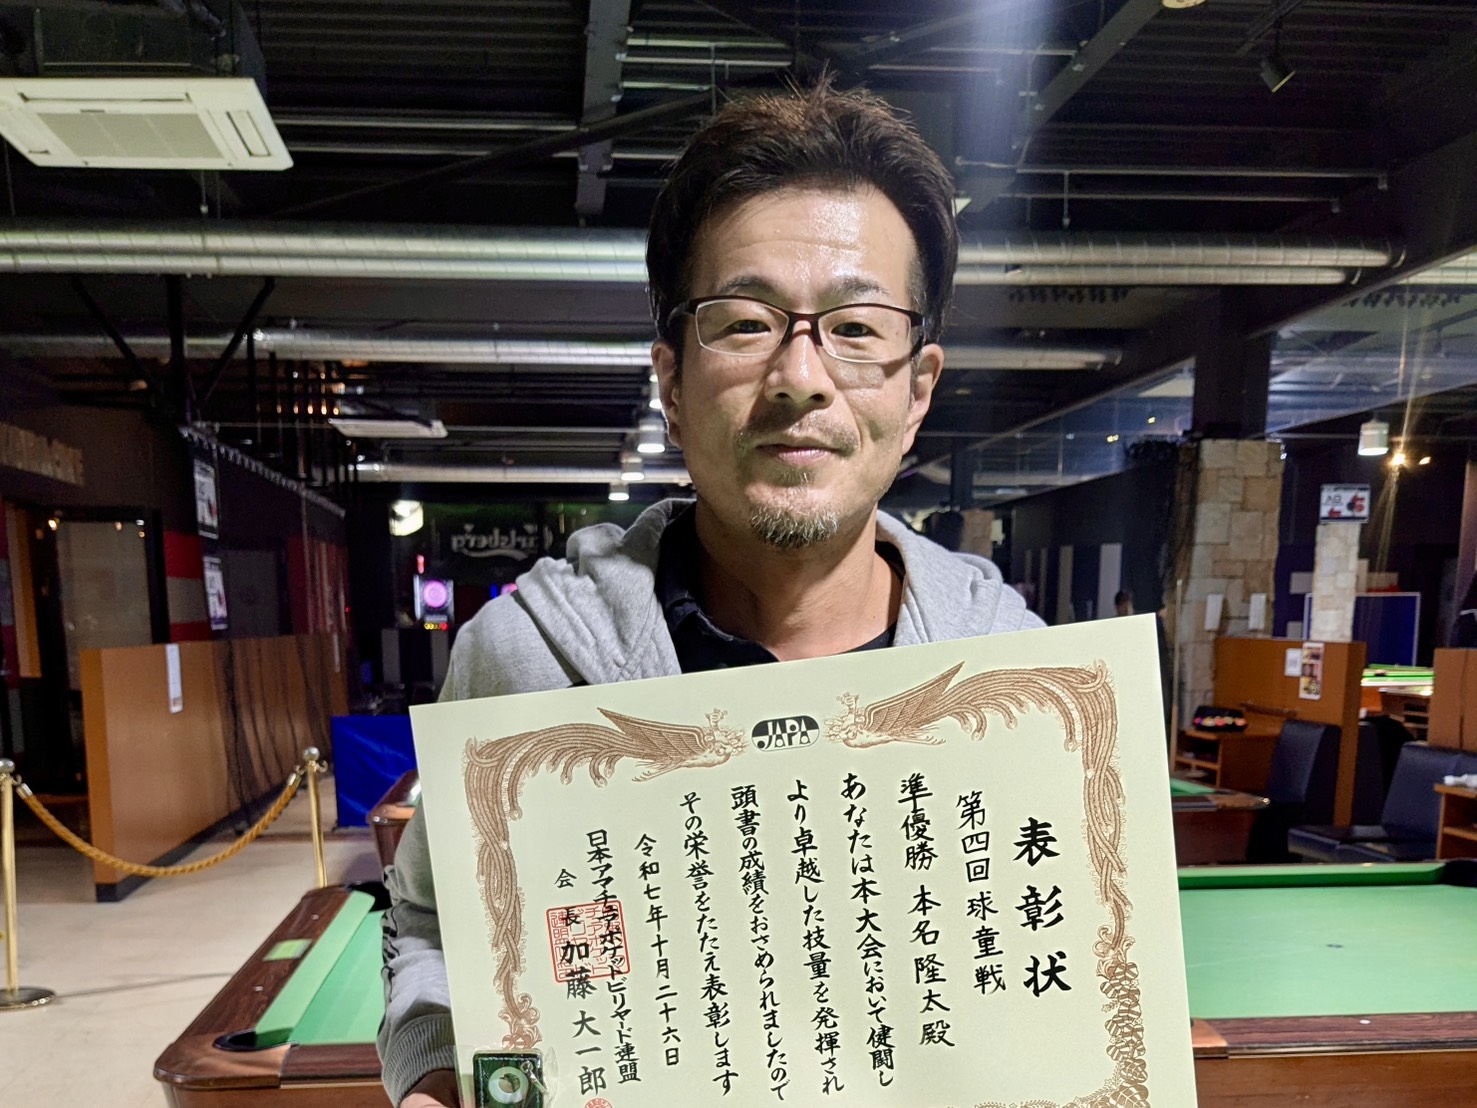 JAPA
表彰状
第四回球童戦
準優勝 本名隆太殿
あなたは本大会において健闘し
より卓越した技量を発揮され
頭書の成績をおさめられましたので
その栄誉をたたえ表彰します
令和七年十月二十六日
日本アマチュアポケットビリヤード連盟
会長 加藤大一郎